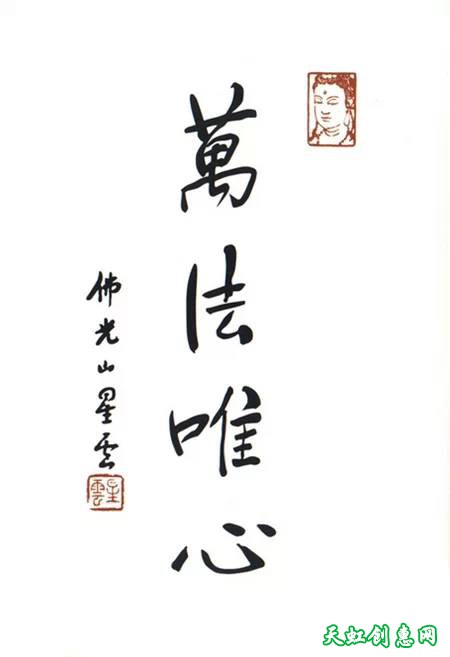 萬法唯心
佛光山星雲
星雲
天虹创意网